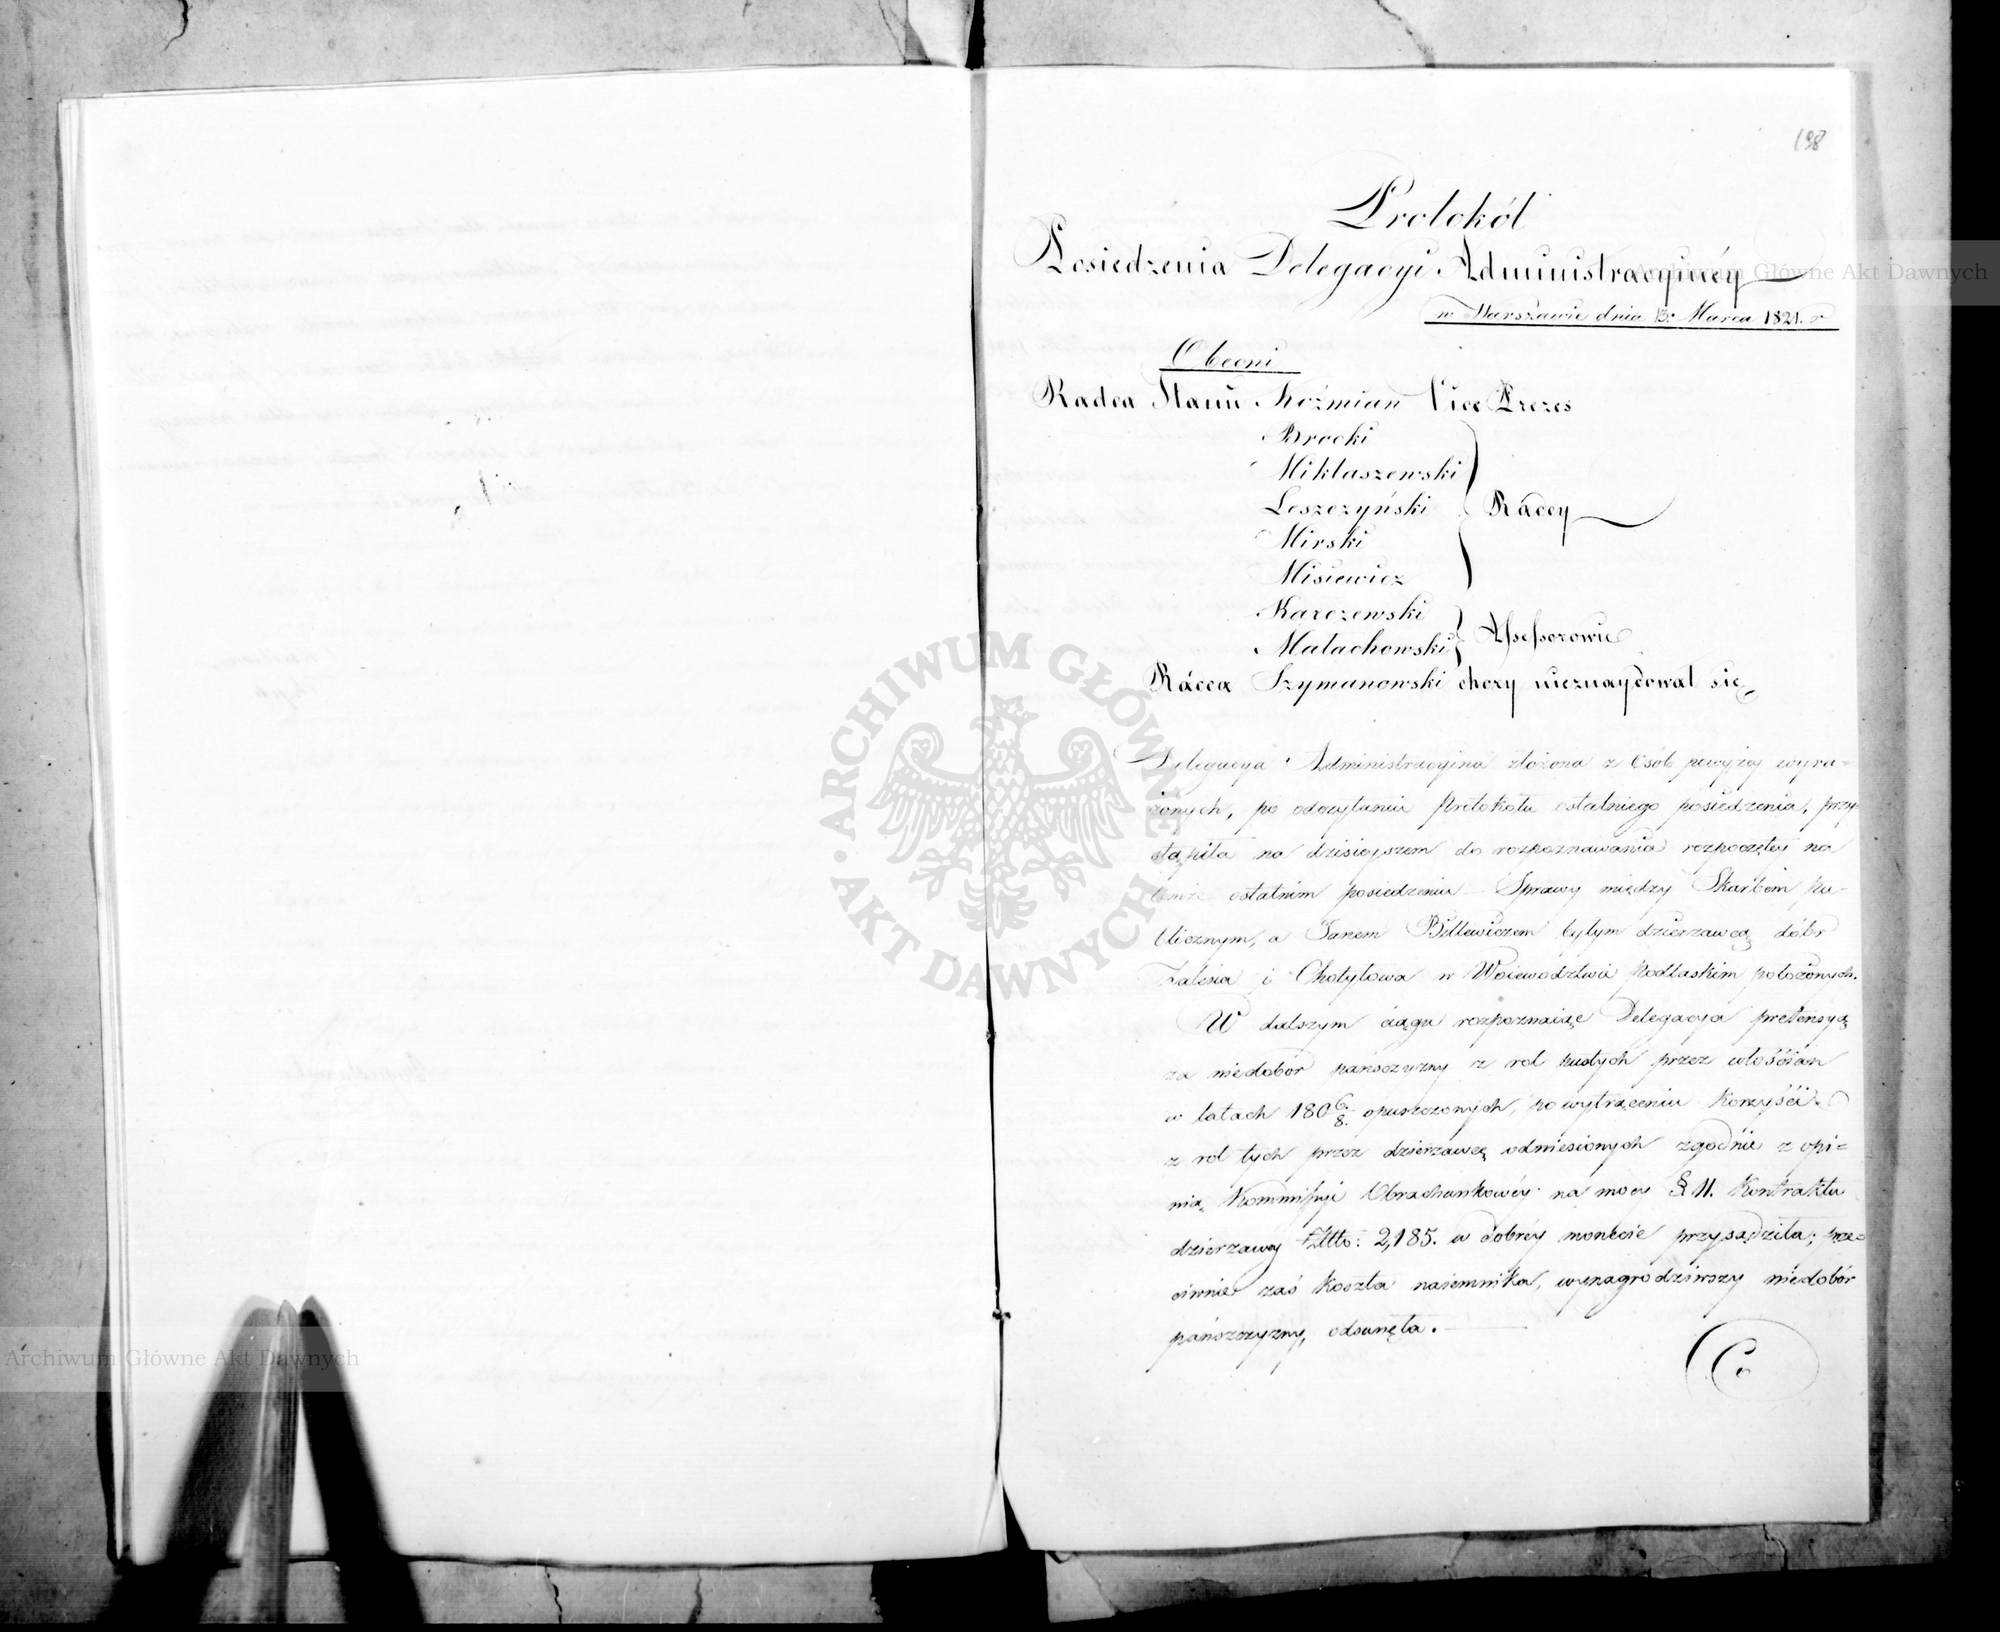 198
Protokół
Posiedzenia Delegacyi Administracyinéy
w Warszawie dnia 13. Marca 1821. r
Obecni
Radca Stanu Koźmian Vice Prezes
Brocki
Miklaszewski
Leszczyński
Radcy
Mirski
Misiewicz
Karczewski
Assessorowie
Małachowski
Radca Szymanowski chory nieznaydował się
Delegacya Administracyina złożona z Osób powyżey wyra-
żonych, po odczytaniu Protokołu ostatniego posiedzenia, przy-
stąpiła na dzisieyszem do rozpoznawania rozpoczętey na
temże ostatnim posiedzeniu Sprawy między Skarbem pu-
blicznym, a Janem Billewiczem byłym dzierżawcą dóbr
Zalesia i Chotyłowa w Woiewodztwie Podlaskim położonych.
W dalszym ciągu rozpoznaiąc Delegacya pretensyą
za niedobór pańszczyzny z rol pustych przez włościan
w latach 180 6/8. opuszczonych, po wytrąceniu korzyści
z rol tych przez dzierżawcę odniesionych zgodnie z opi=
nią Kommissyi Obrachunkowéy na mocy § 11. Kontraktu
dzierzawcy Złło: 2,185. w dobréy monecie przysądziła; prze=
ciwnie zaś koszta naiemnika, wynagrodziwszy niedobór
pańszczyzny, odsunęła.
Co
ARCHIWUM GŁÓWNE AKT DAWNYCH
Archiwum Główne Akt Dawnych
Archiwum Główne Akt Dawnych